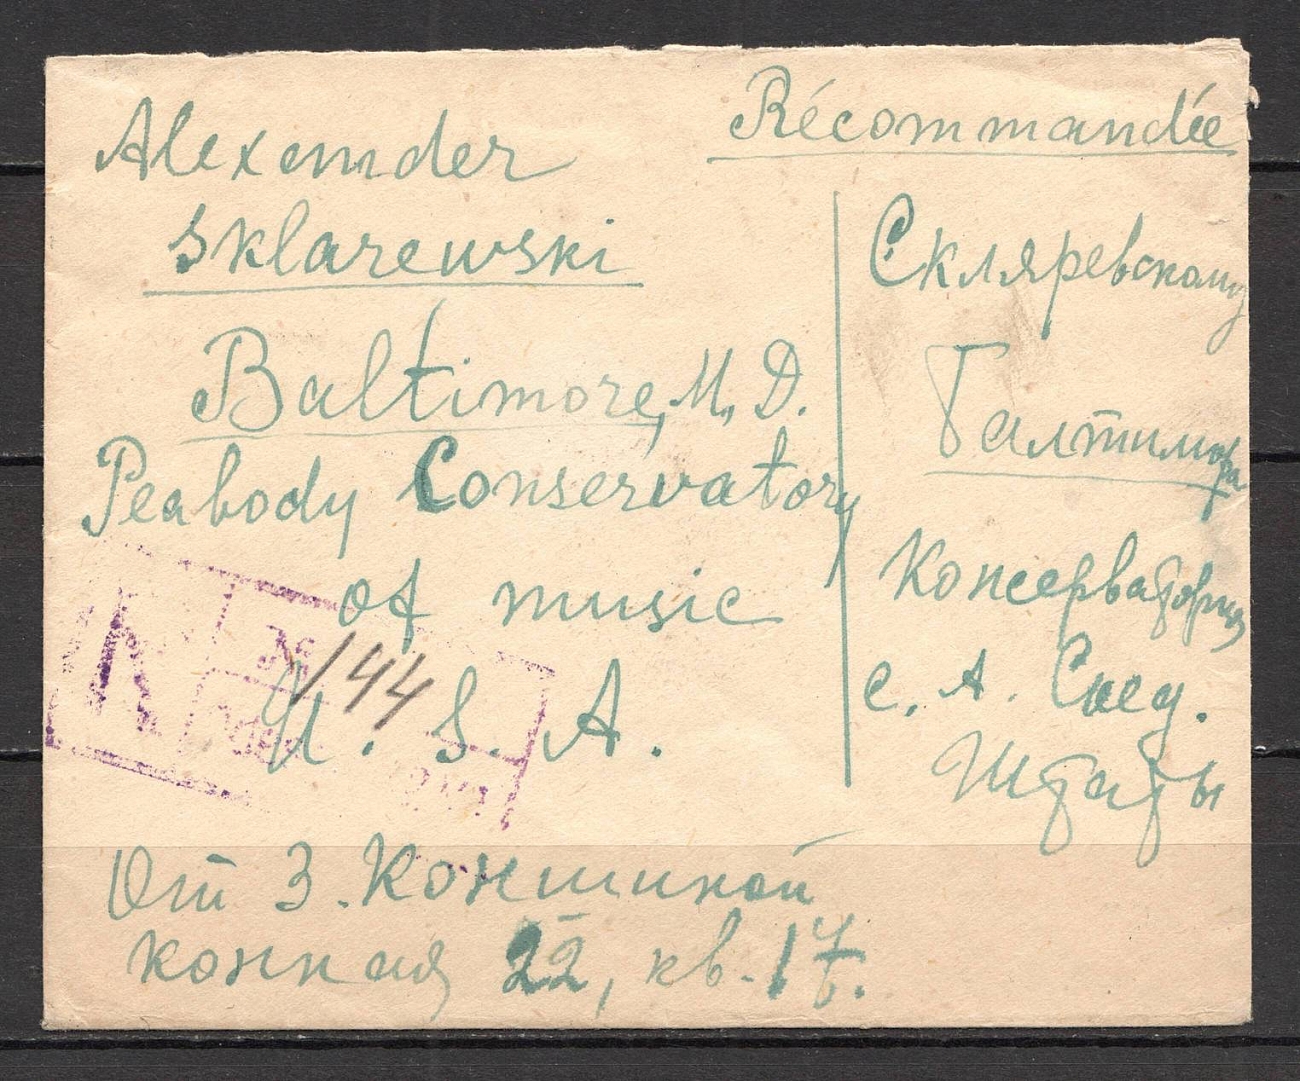 Récommandée
Alexander
Sklarewski
Baltimore, M, D.
Peabody Conservatory
of music
U. S. A.
Скляревскому
Балтимора
Консерватория
С. А. Соед.
Штаты
№
144
От З. Коншиной
конная 22, кв. 17.